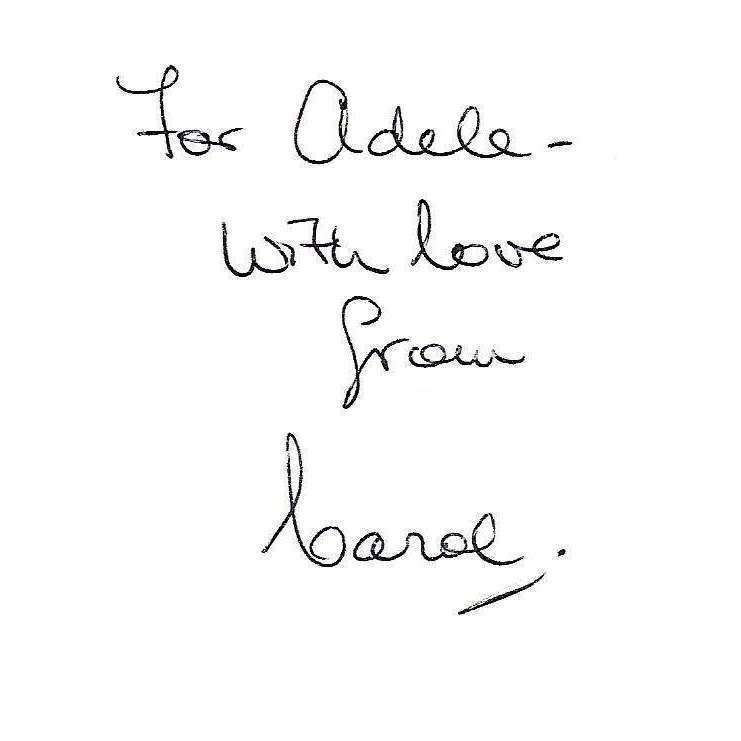 For Adele -
With love
from
Carol.